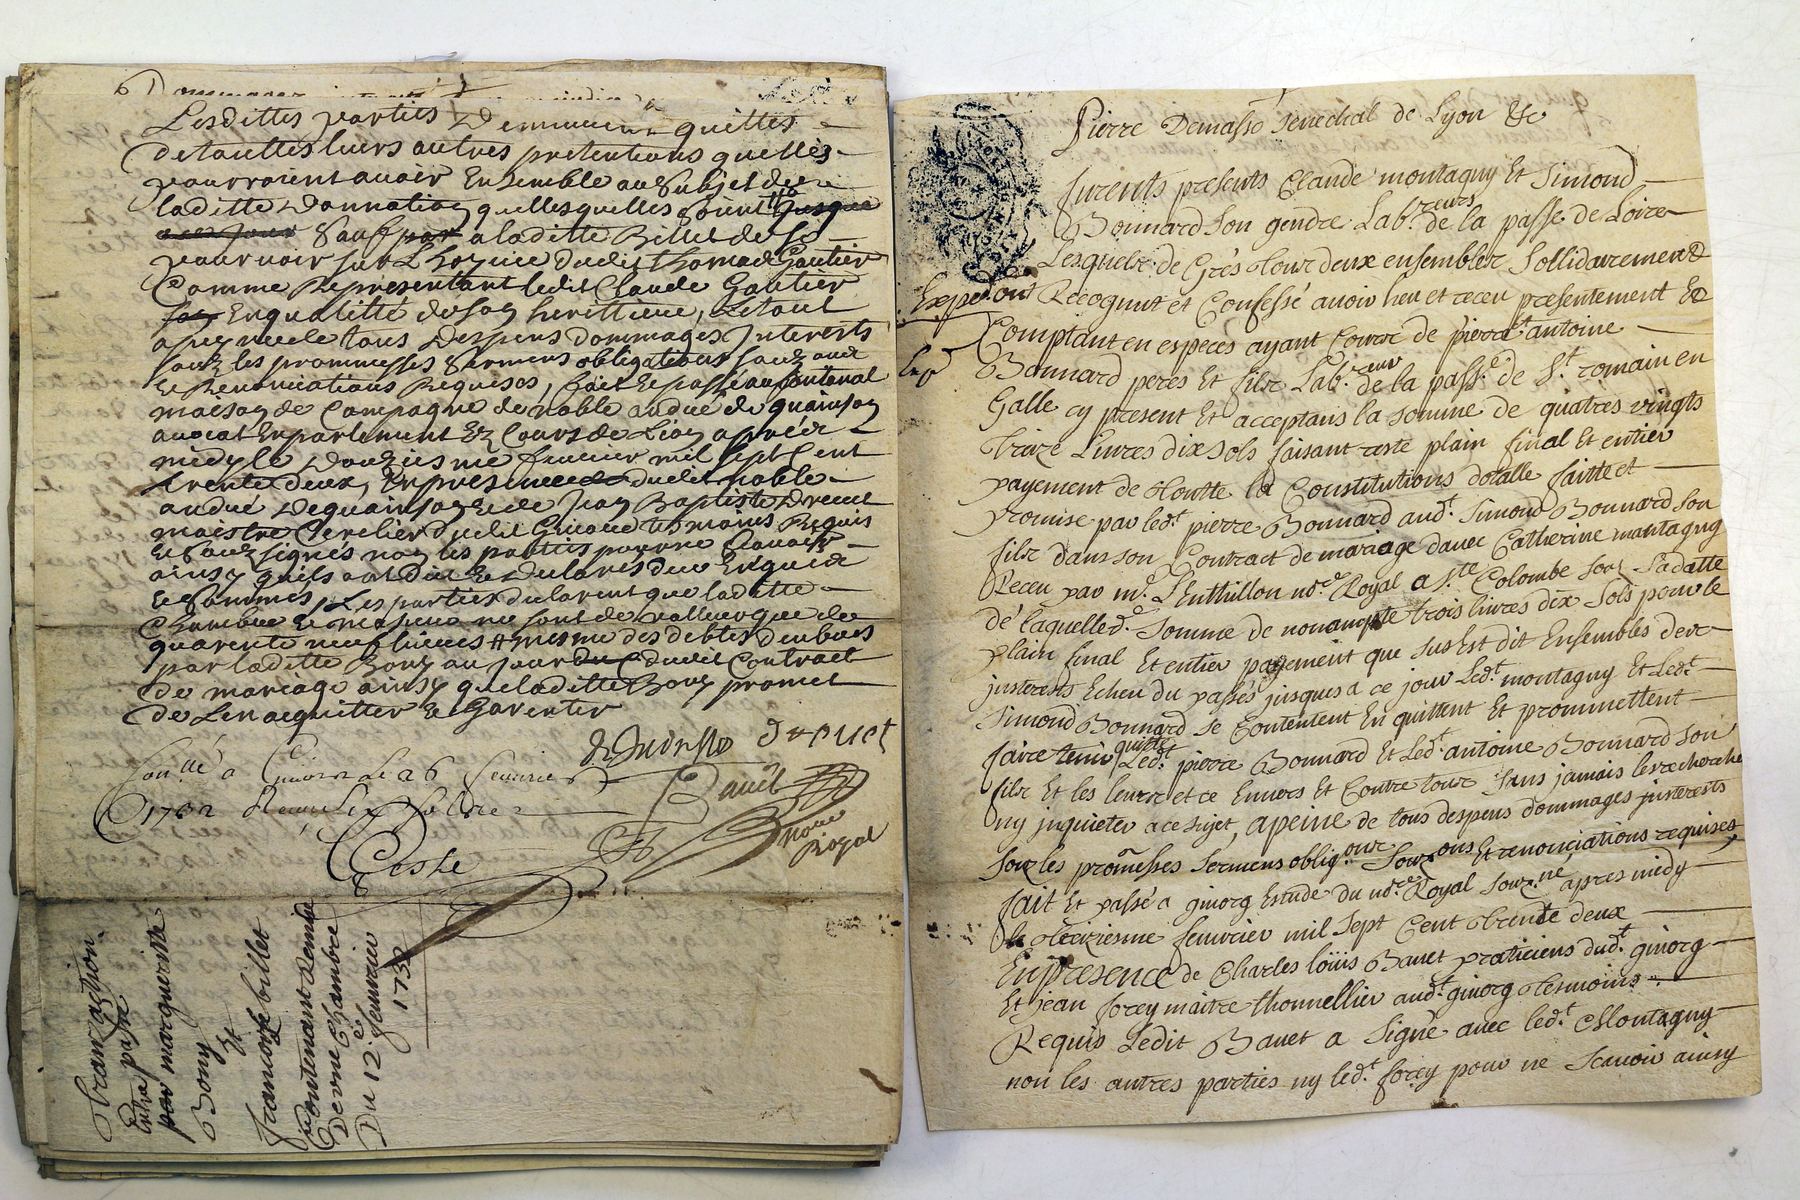 Lesdittes parties Demeurent quittes
detouttes leurs autres pretentions quelles
pourroient auoir Ensemble au Subjet de
laditte Donnation quellesquelles soient jusque
Sauf a laditte Billet de se
pouruoir sur L'hoyrie dudit thomas Gautier
Comme Representant ledit Claude Gautier
Enqualitté de son heritiere, Letout
a peyne de tous Despens dommages Interests
souz les prommesses Sermens obligations souz aux
Et Renonciations Requises, fait Et passé au fontenat
maison de Campagne de noble andué de quainson
auocat Enparlement Ez Cours de Lion apres
midy le Douziesme feurier mil sept Cent
trente deux, En presence dudit noble
andué Dequainson et de Jean Baptiste Drevet
maistre dudit tesmoins Requis
Et souz signés non les parties pour ne scauoir
ainsy quils ont dit Et Declarés de ce Enquis
Et Sommés, Les parties declarent que laditte
Chambre Et ne sont de valleur que de
quarente neuf liures mesme des debtes deubues
par laditte Bony au jour dudit Contract
de mariage ainsy que laditte Bony promet
de Len acquitter Et Garentir
Drevet
Conllé a Giuors Le 26 feurier
1732 Receu Six Solz
Coste
Bauët
Nore
Royal
Tranzaction
Entre passé
par margueritte
Bony
Et
francoize billet
Contenant Remise
D'erne Chambre
Du 12.e feurier
1732
Pierre Demasso Senechal de Lyon &c
furents presents Claude montagny Et Simond
Bonnard Son gendre Lab.reurs de la passe de Loire
Lesquels de Grés tour deux ensembles Sollidairement
Expd ont Recognut et Confessé auoir heu et receu presentement Et
Comptant en especes ayant Cours de pierre Et antoine
Exp
Bonnard peres Et fils Lab.reur de la pass.e de S.t romain en
Galle cy present Et acceptans la somme de quatres vingts
treize Liures dix sols faisant reste plain final Et entier
payement de toutte la Constitutions dotalle faitte et
promise par led.t pierre Bonnard aud.t Simond Bonnard son
fils dans son Contract de mariage d'auec Catherine montagny
Receu par m.e L'Enthillon no.re Royal a S.te Colombe Souz Sadatte
de laquelle d. Somme de nonante trois liures dix Sols pour le
plain final Et entier payement que sus Est dit Ensembles des
justerests Echeu du passés jusques a ce jour Led.t montagny Et Led.t
Simond Bonnard se Contentent En quittent Et prommettent
faire tenir quitte Led.t pierre Bonnard Et Led.t antoine Bonnard son
fils Et les leurs et ce Enuers Et Contre tous Sans jamais les recherche
ny jnquieter a ce sujet, a peine de tous despens dommages justerests
Souz les promesses Sermens oblig.ons Souz.ons Et renonciations requises,
fait Et passé a giuors Estude du no.re Royal Souz.ne, apres midy
le treiziesme feuurier mil Sept Cent trente deux
En presence de Charles loüis Bauet praticiens dud.t giuors
Et jean forey maitre thonnellier aud.t giuors tesmoins
Requis Ledit Bauet a Signé auec led.t Montagny
non les autres parties ny led.t forey pour ne Scauoir ainsy